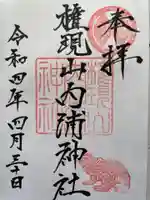 奉拝
権現山内浦神社
令和四年四月三十日